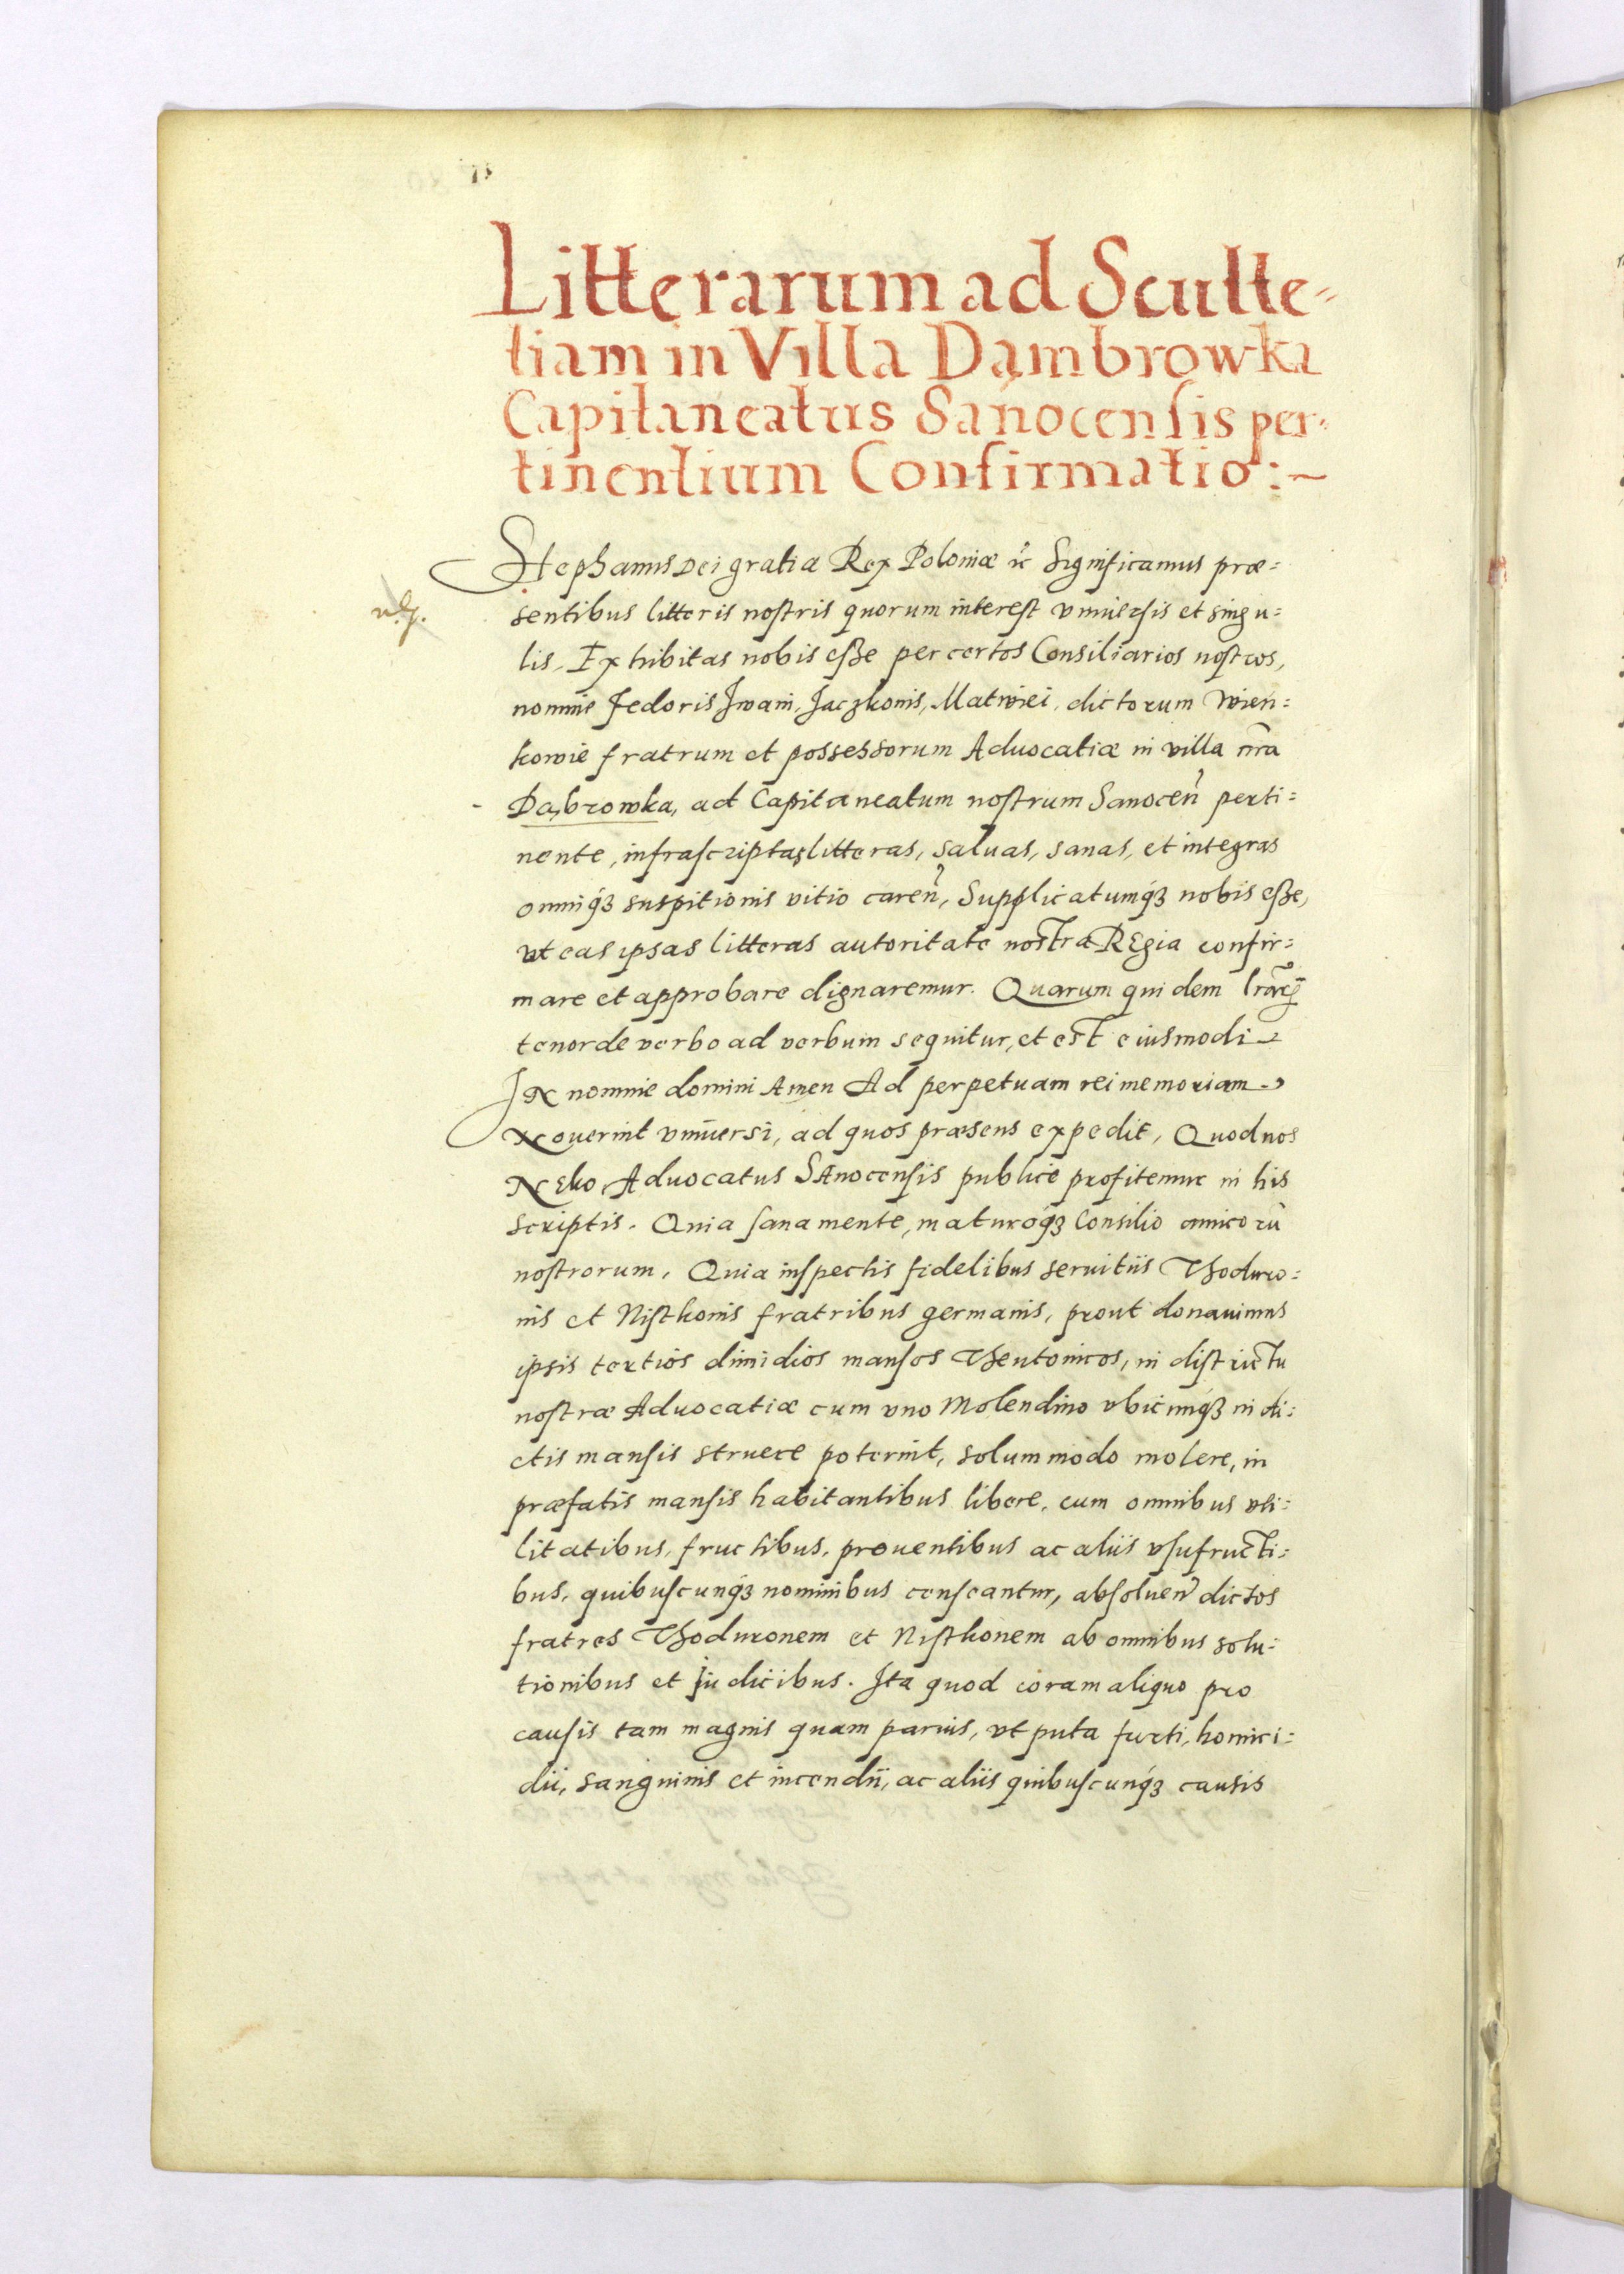 Litterarum ad Sculte-
tiam in Villa Dambrowka
Capitaneatus Sanocensis per-
tinentium Confirmatio:~
Stephanus Dei gratia Rex Poloniæ &c Significamus præ=
sentibus litteris nostris quorum interest vniuersis et singu=
lis. Exhibitas nobis eße per certos Consiliarios nostros,
nomine Fedoris Iwani, Jaczkonis, Matwiei, dictorum Wien=
kowie fratrum et possessorum Aduocatiæ in villa nr̃a
Dąbrowka, ad Capitaneatum nostrum Sanoceñ perti=
nente, infrascriptas litteras, saluas, sanas, et integras
omniq́ꝫ suspitionis vitio careñ, Supplicatumq́ꝫ nobis eße,
vt eas ipsas litteras autoritate nostra REgia confir=
mare et approbare dignaremur. Quarum quidem lr̃arꝝ
tenor de verbo ad verbum sequitur, et est eiusmodi
IN nomine domini Amen Ad perpetuam rei memoriam
Nouerint vniuersi, ad quos præsens expedit, Quod nos
NEko Aduocatus SAnocensis publice profitemur in his
scriptis. Quia sana mente, maturoq́ꝫ Consilio amicorũ
nostrorum. Quia inspectis fidelibus seruitiis Thoduro=
nis et Nisthonis fratribus germanis, prout donauimus
ipsis tertios dimidios mansos Theutonicos, in districtu
nostræ Aduocatiæ cum vno Molendino vbicunq́ꝫ in di=
ctis mansis struere poterint, solummodo molere, in
præfatis mansis habitantibus libere, cum omnibus vti=
litatibus, fructibus, prouentibus ac aliis vsufructi=
bus, quibuscunq́ꝫ nominibus censeantur, absolueñ dictos
fratres Thoduronem et Nisthonem ab omnibus solu=
tionibus et judicibus. Ita quod coram aliquo pro
causis tam magnis quam paruis, vt puta furti, homici=
dii, sanguinis et incendii, ac aliis quibuscunq́ꝫ causis